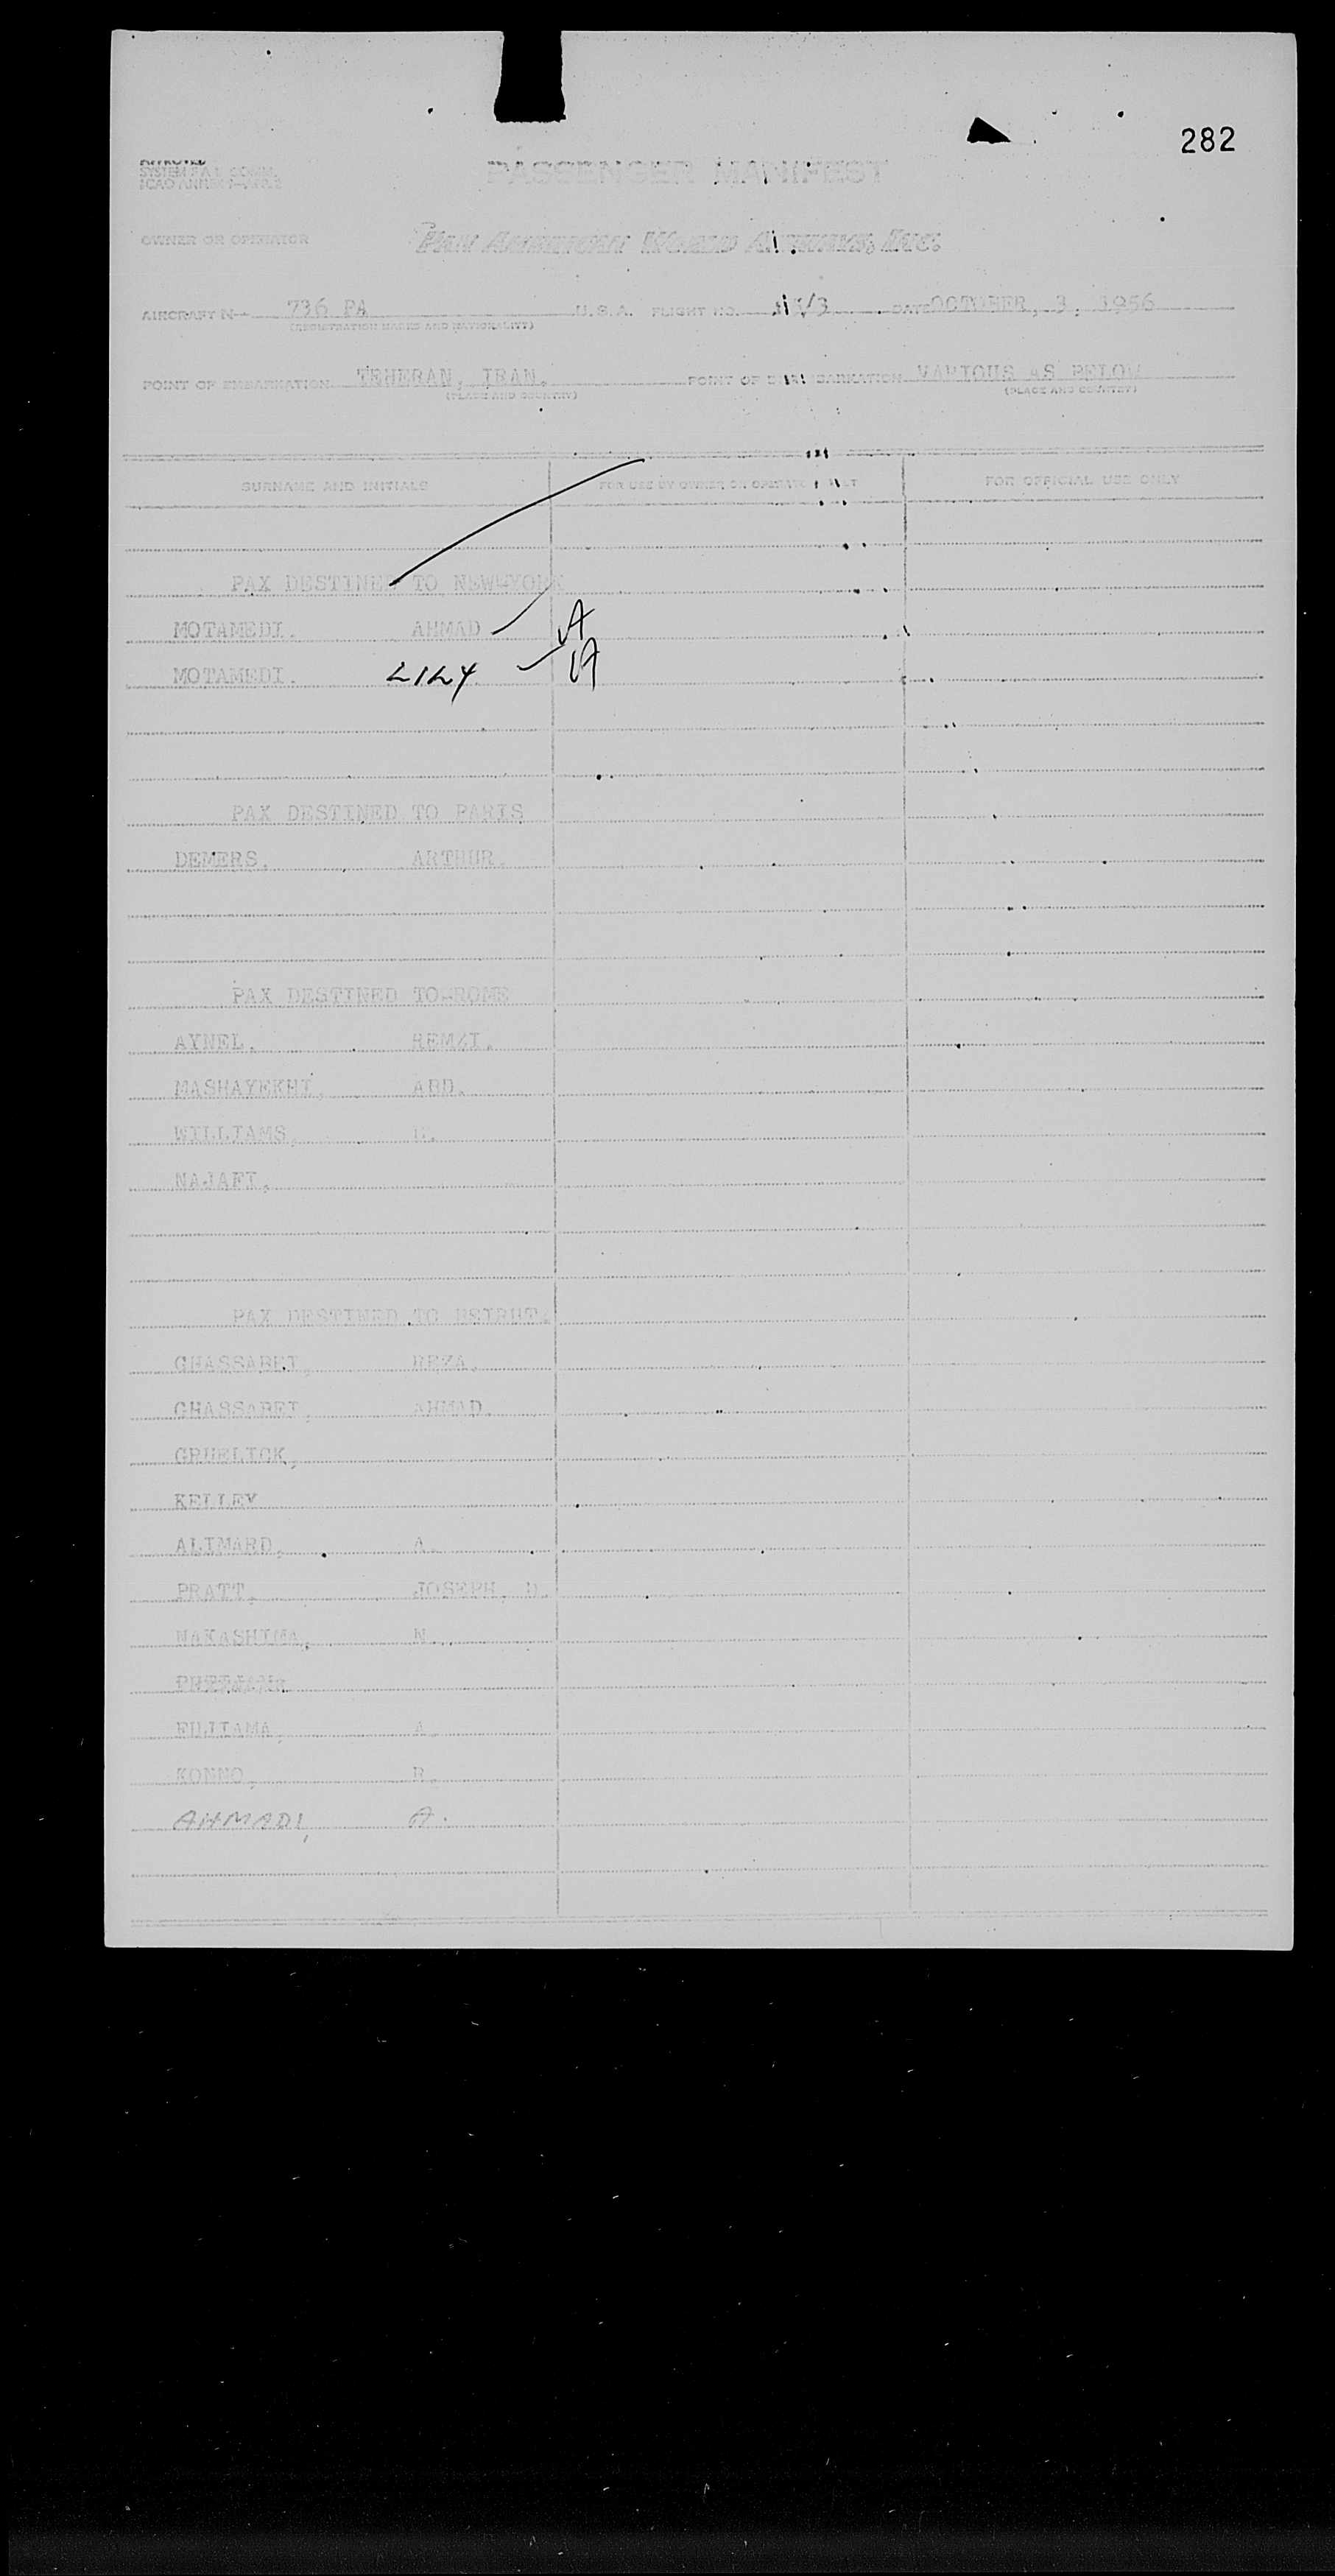 282
PASSENGER MANIFEST
OWNER OR OPERATOR PAN AMERICAN WORLD AIRWAYS, INC.
AIRCRAFT N— 736 PA U.S.A. FLIGHT NO. /3 DATE OCTOBER, 3, 1956
(REGISTRATION MARKS AND NATIONALITY)
POINT OF EMBARKATION TEHERAN, IRAN. POINT OF DISEMBARKATION VARIOUS AS BELOW
(PLACE AND COUNTRY) (PLACE AND COUNTRY)
SURNAME AND INITIALS FOR USE BY OWNER OR OPERATOR FOR OFFICIAL USE ONLY
PAX DESTINED TO NEW-YORK
MOTAMEDI. AHMAD A
MOTAMEDI. LILY A
PAX DESTINED TO PARIS
DEMERS. ARTHUR.
PAX DESTINED TO-ROME
AYNEL. REMZI.
MASHAYEKHI, ABD.
WILLIAMS,
NAJAFI,
PAX DESTINED TO BEIRUT.
GHASSABEI, REZA.
GHASSABEI, AHMAD.
GRUELICK,
KELLEY
ALIMARD, A.
PRATT, JOSEPH, D.
NAKASHIMA, N.
FUJIAMA, A.
KONNO, R.
AHMADI, A.